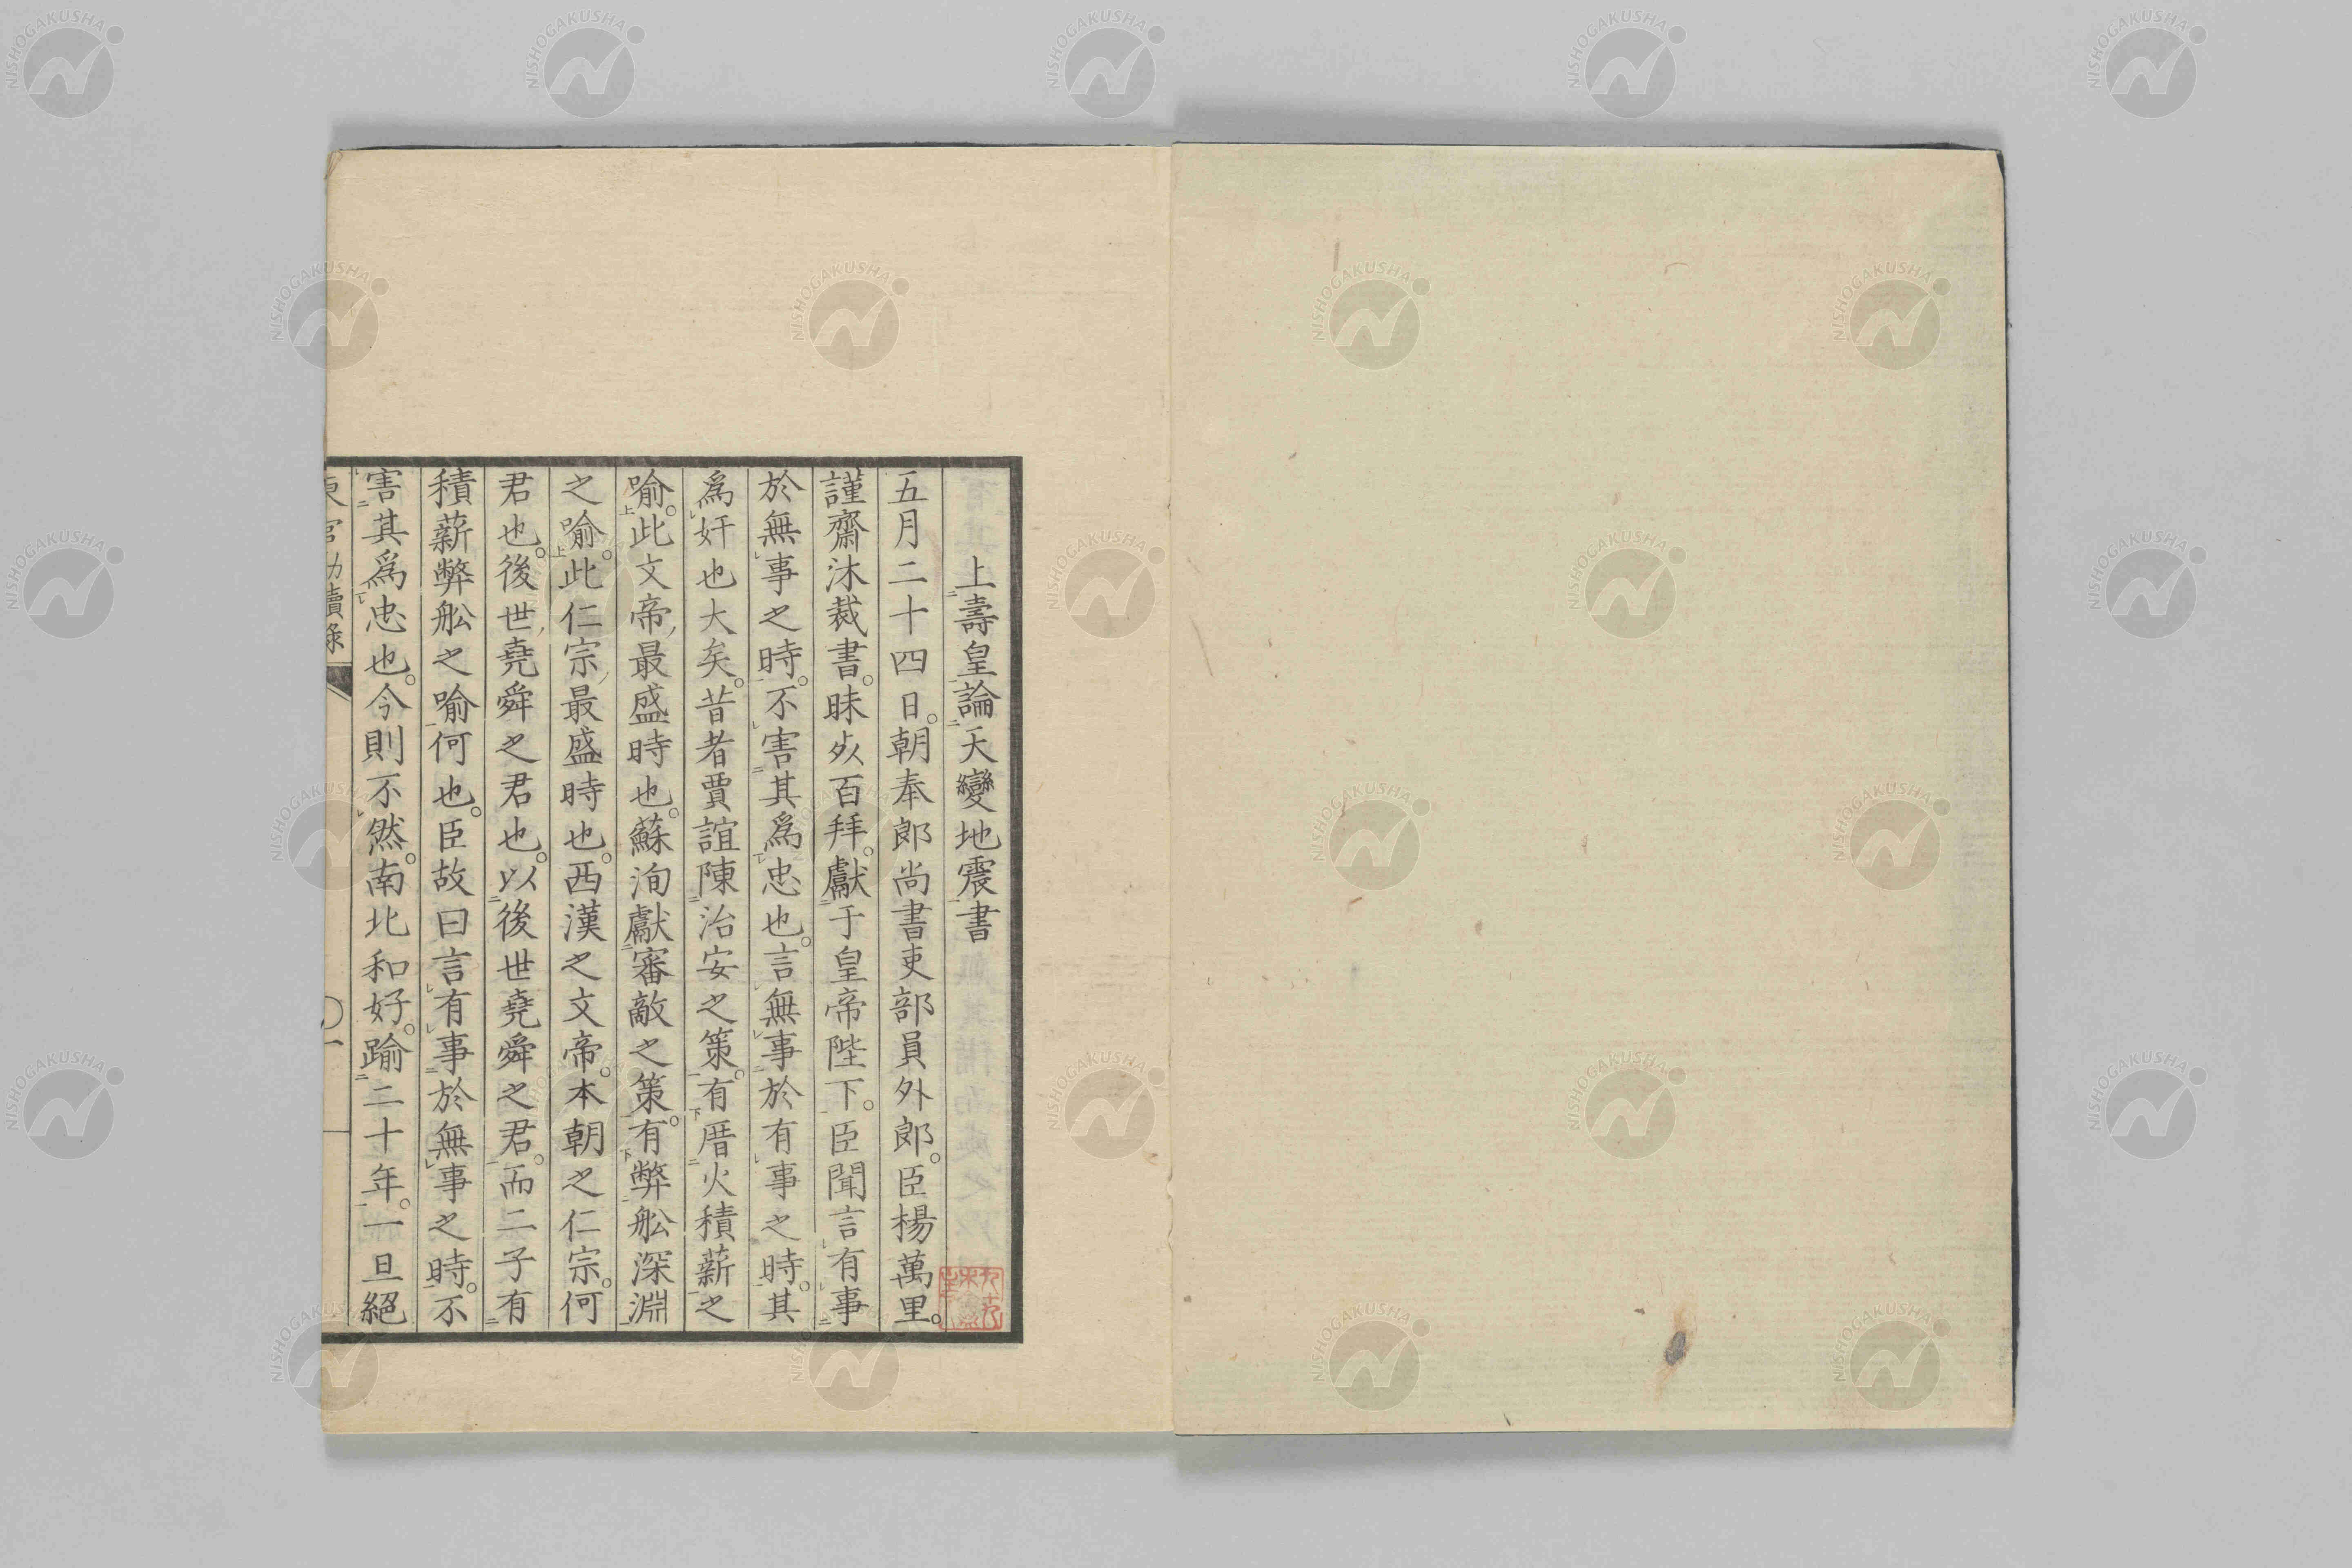 上壽皇論天變地震書
五月二十四日。朝奉郎尚書吏部員外郎。臣楊萬里。
謹齋沐裁書。昧㱑百拜。獻于皇帝陛下。臣聞言有事
於無事之時。不害其爲忠也。言無事於有事之時。其
爲奸也大矣。昔者賈誼陳治安之策。有厝火積薪之
喻。此文帝最盛時也。蘇洵獻審敵之策。有弊舩深淵
之喻。此仁宗最盛時也。西漢之文帝。本朝之仁宗。何
君也。後世堯舜之君也。以後世堯舜之君。而二子有
積薪弊舩之喻何也。臣故曰言有事於無事之時。不
害其爲忠也。今則不然。南北和好。踰二十年。一旦絕
NISHOGAKUSHA